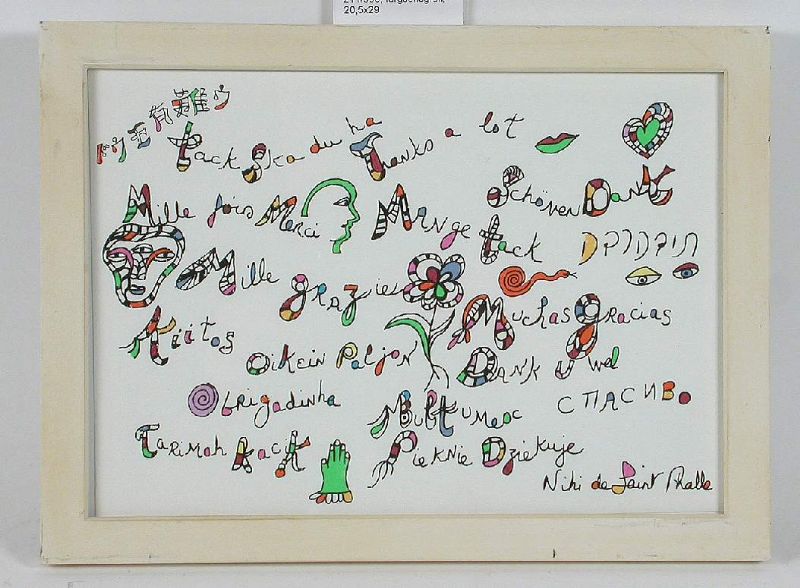 20,5x29
有難ウ
Tack Ska du ha
Thanks a lot
Mille fois Merci
Mange tack
Schönen Dank
Mille grazie
Muchas gracias
Kiitos
Oikein Paljon
Dank u wel
Obrigadinha
Multumesc
СПАСИВо
Tarimah Kacih
Pieknie Dziekuje
Niki de Saint Phalle